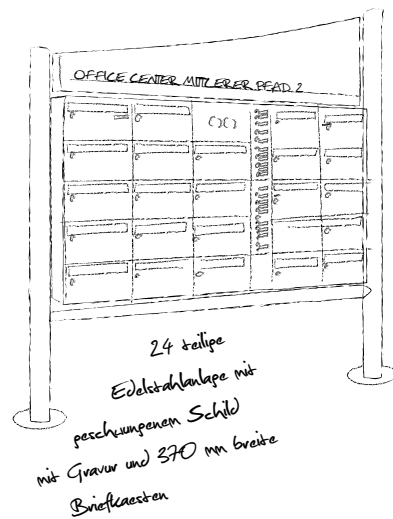 OFFICE CENTER MITTLERER PFAD 2
24 teilige
Edelstahlanlage mit
geschwungenem Schild
mit Gravur und 370 mm breite
Briefkaesten